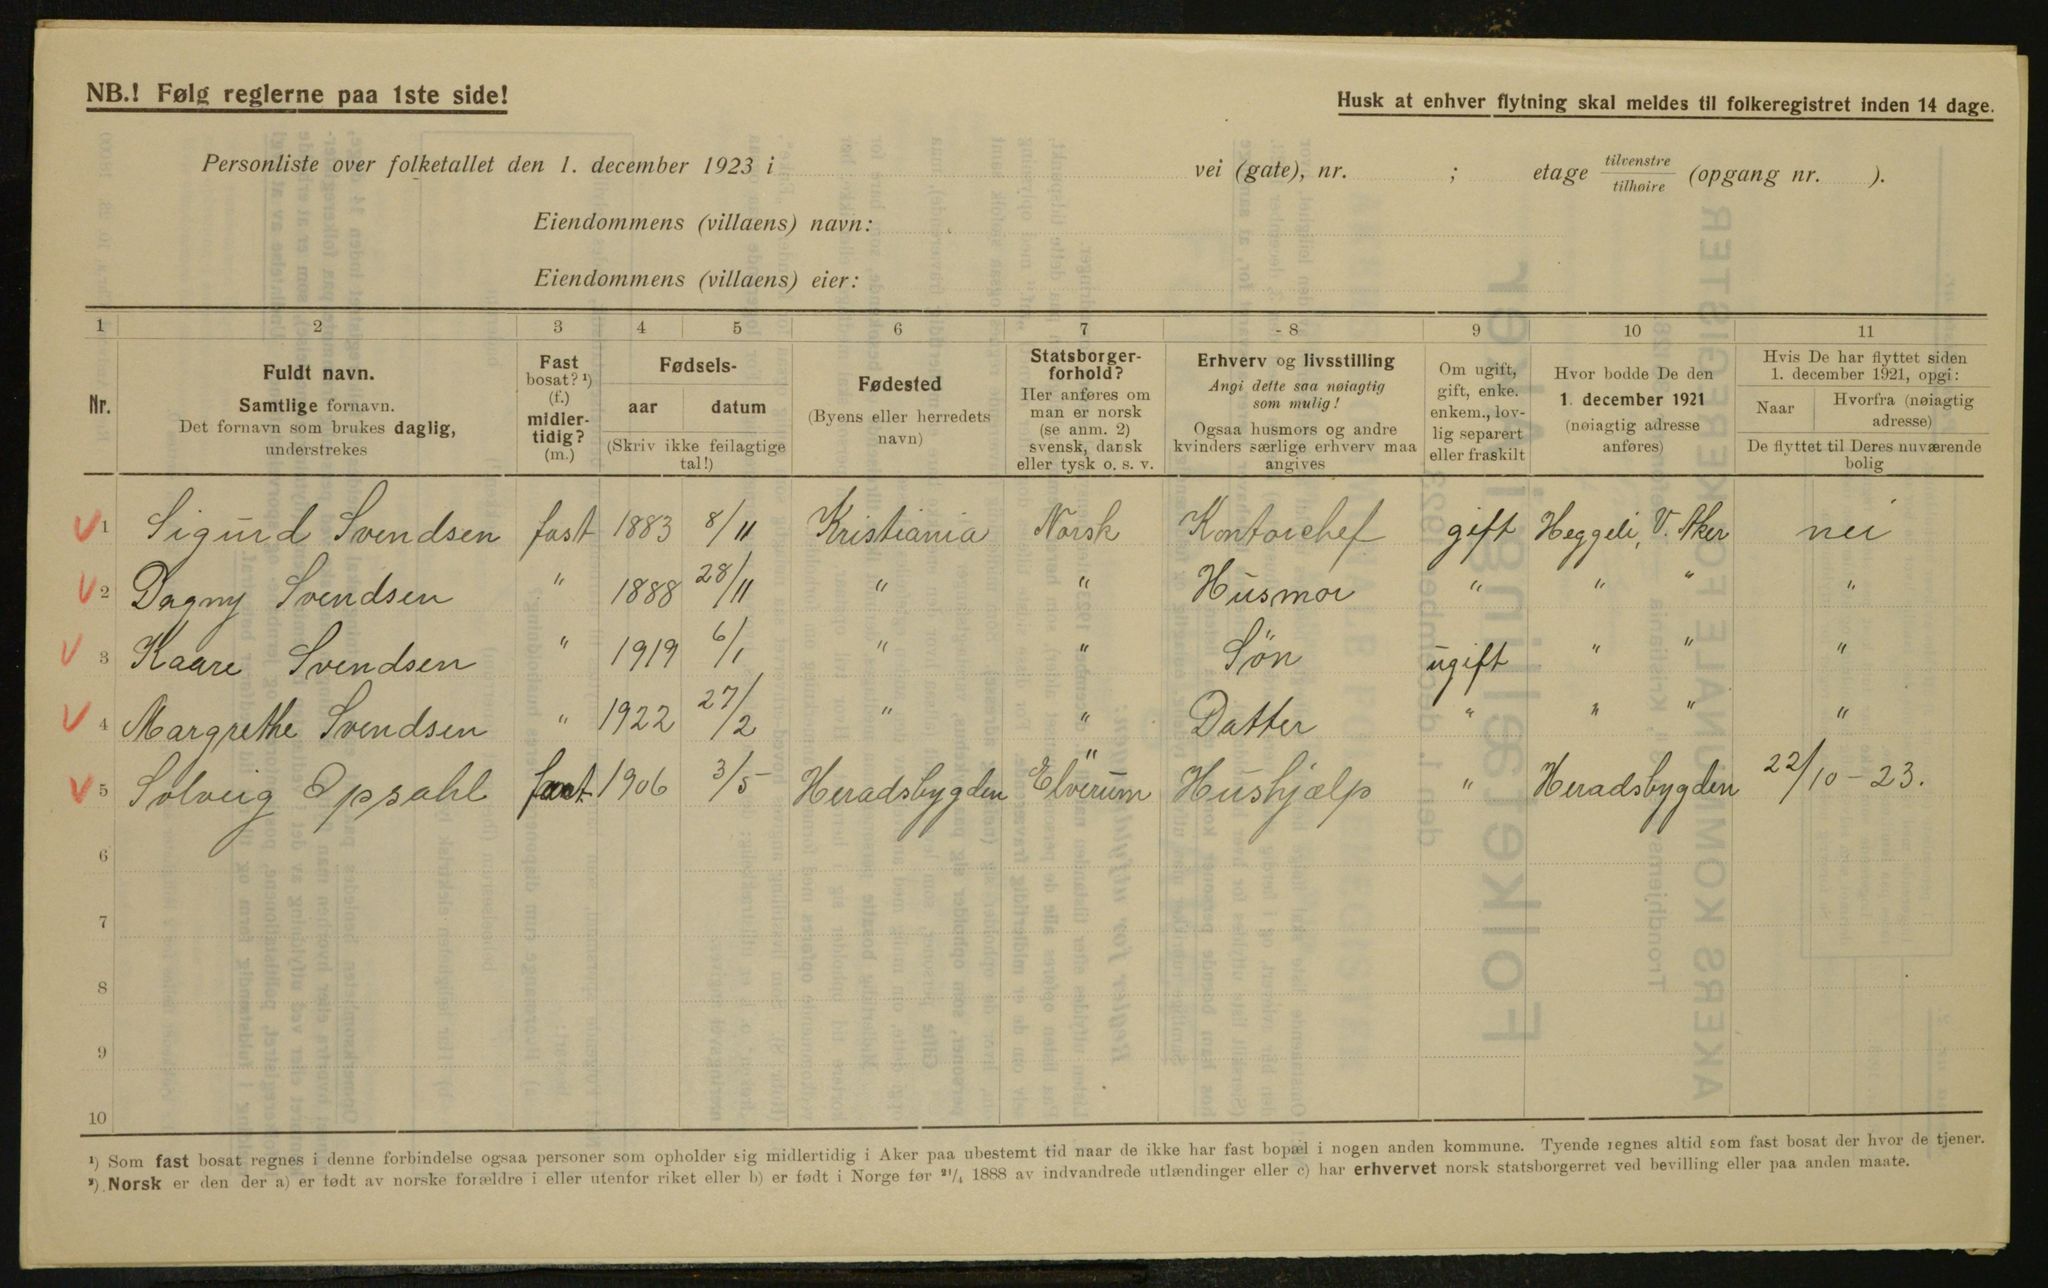 NB.! Følg reglerne paa 1ste side!
Husk at enhver flytning skal meldes til folkeregistret inden 14 dage.
Personliste over folketallet den 1. december 1923 i vei (gate), nr. ; etage tilvenstre / tilhøire (opgang nr. ).
Eiendommens (villaens) navn:
Eiendommens (villaens) eier:
1 2 3 4 5 6 7 8 9 10 11
Nr.
Fuldt navn.
Samtlige fornavn.
Det fornavn som brukes daglig,
understrekes
Fast
bosat? ¹)
(f.)
midler-
tidig?
(m.)
Fødsels-
aar datum
(Skriv ikke feilagtige
tal!)
Fødested
(Byens eller herredets
navn)
Statsborger-
forhold?
Her anføres om
man er norsk
(se anm. 2)
svensk, dansk
eller tysk o. s. v.
Erhverv og livsstilling
Angi dette saa nøiagtig
som mulig!
Ogsaa husmors og andre
kvinders særlige erhverv maa
angives
Om ugift,
gift, enke.
enkem., lov-
lig separert
eller fraskilt
Hvor bodde De den
1. december 1921
(nøiagtig adresse
anføres)
Hvis De har flyttet siden
1. december 1921, opgi:
Naar Hvorfra (nøiagtig
adresse)
De flyttet til Deres nuværende
bolig
1 Sigurd Svendsen fast 1883 8/11 Kristiania Norsk Kontorchef gift Heggeli, V. Aker nei
2 Dagny Svendsen " 1888 28/11 " " Husmor " " " "
3 Kaare Svendsen " 1919 6/1 " " Søn ugift " " "
4 Margrethe Svendsen " 1922 27/2 " " Datter " " " "
5 Solveig Opsahl fast 1906 3/5 Heradsbygden Elverum " Hushjælp " Heradsbygden 22/10-23.
6
7
8
9
10
¹) Som fast bosat regnes i denne forbindelse ogsaa personer som opholder sig midlertidig i Aker paa ubestemt tid naar de ikke har fast bopæl i nogen anden kommune. Tyende regnes altid som fast bosat der hvor de tjener.
²) Norsk er den der a) er født av norske forældre i eller utenfor riket eller b) er født i Norge før 21/4 1888 av indvandrede utlændinger eller c) har erhvervet norsk statsborgerret ved bevilling eller paa anden maate.